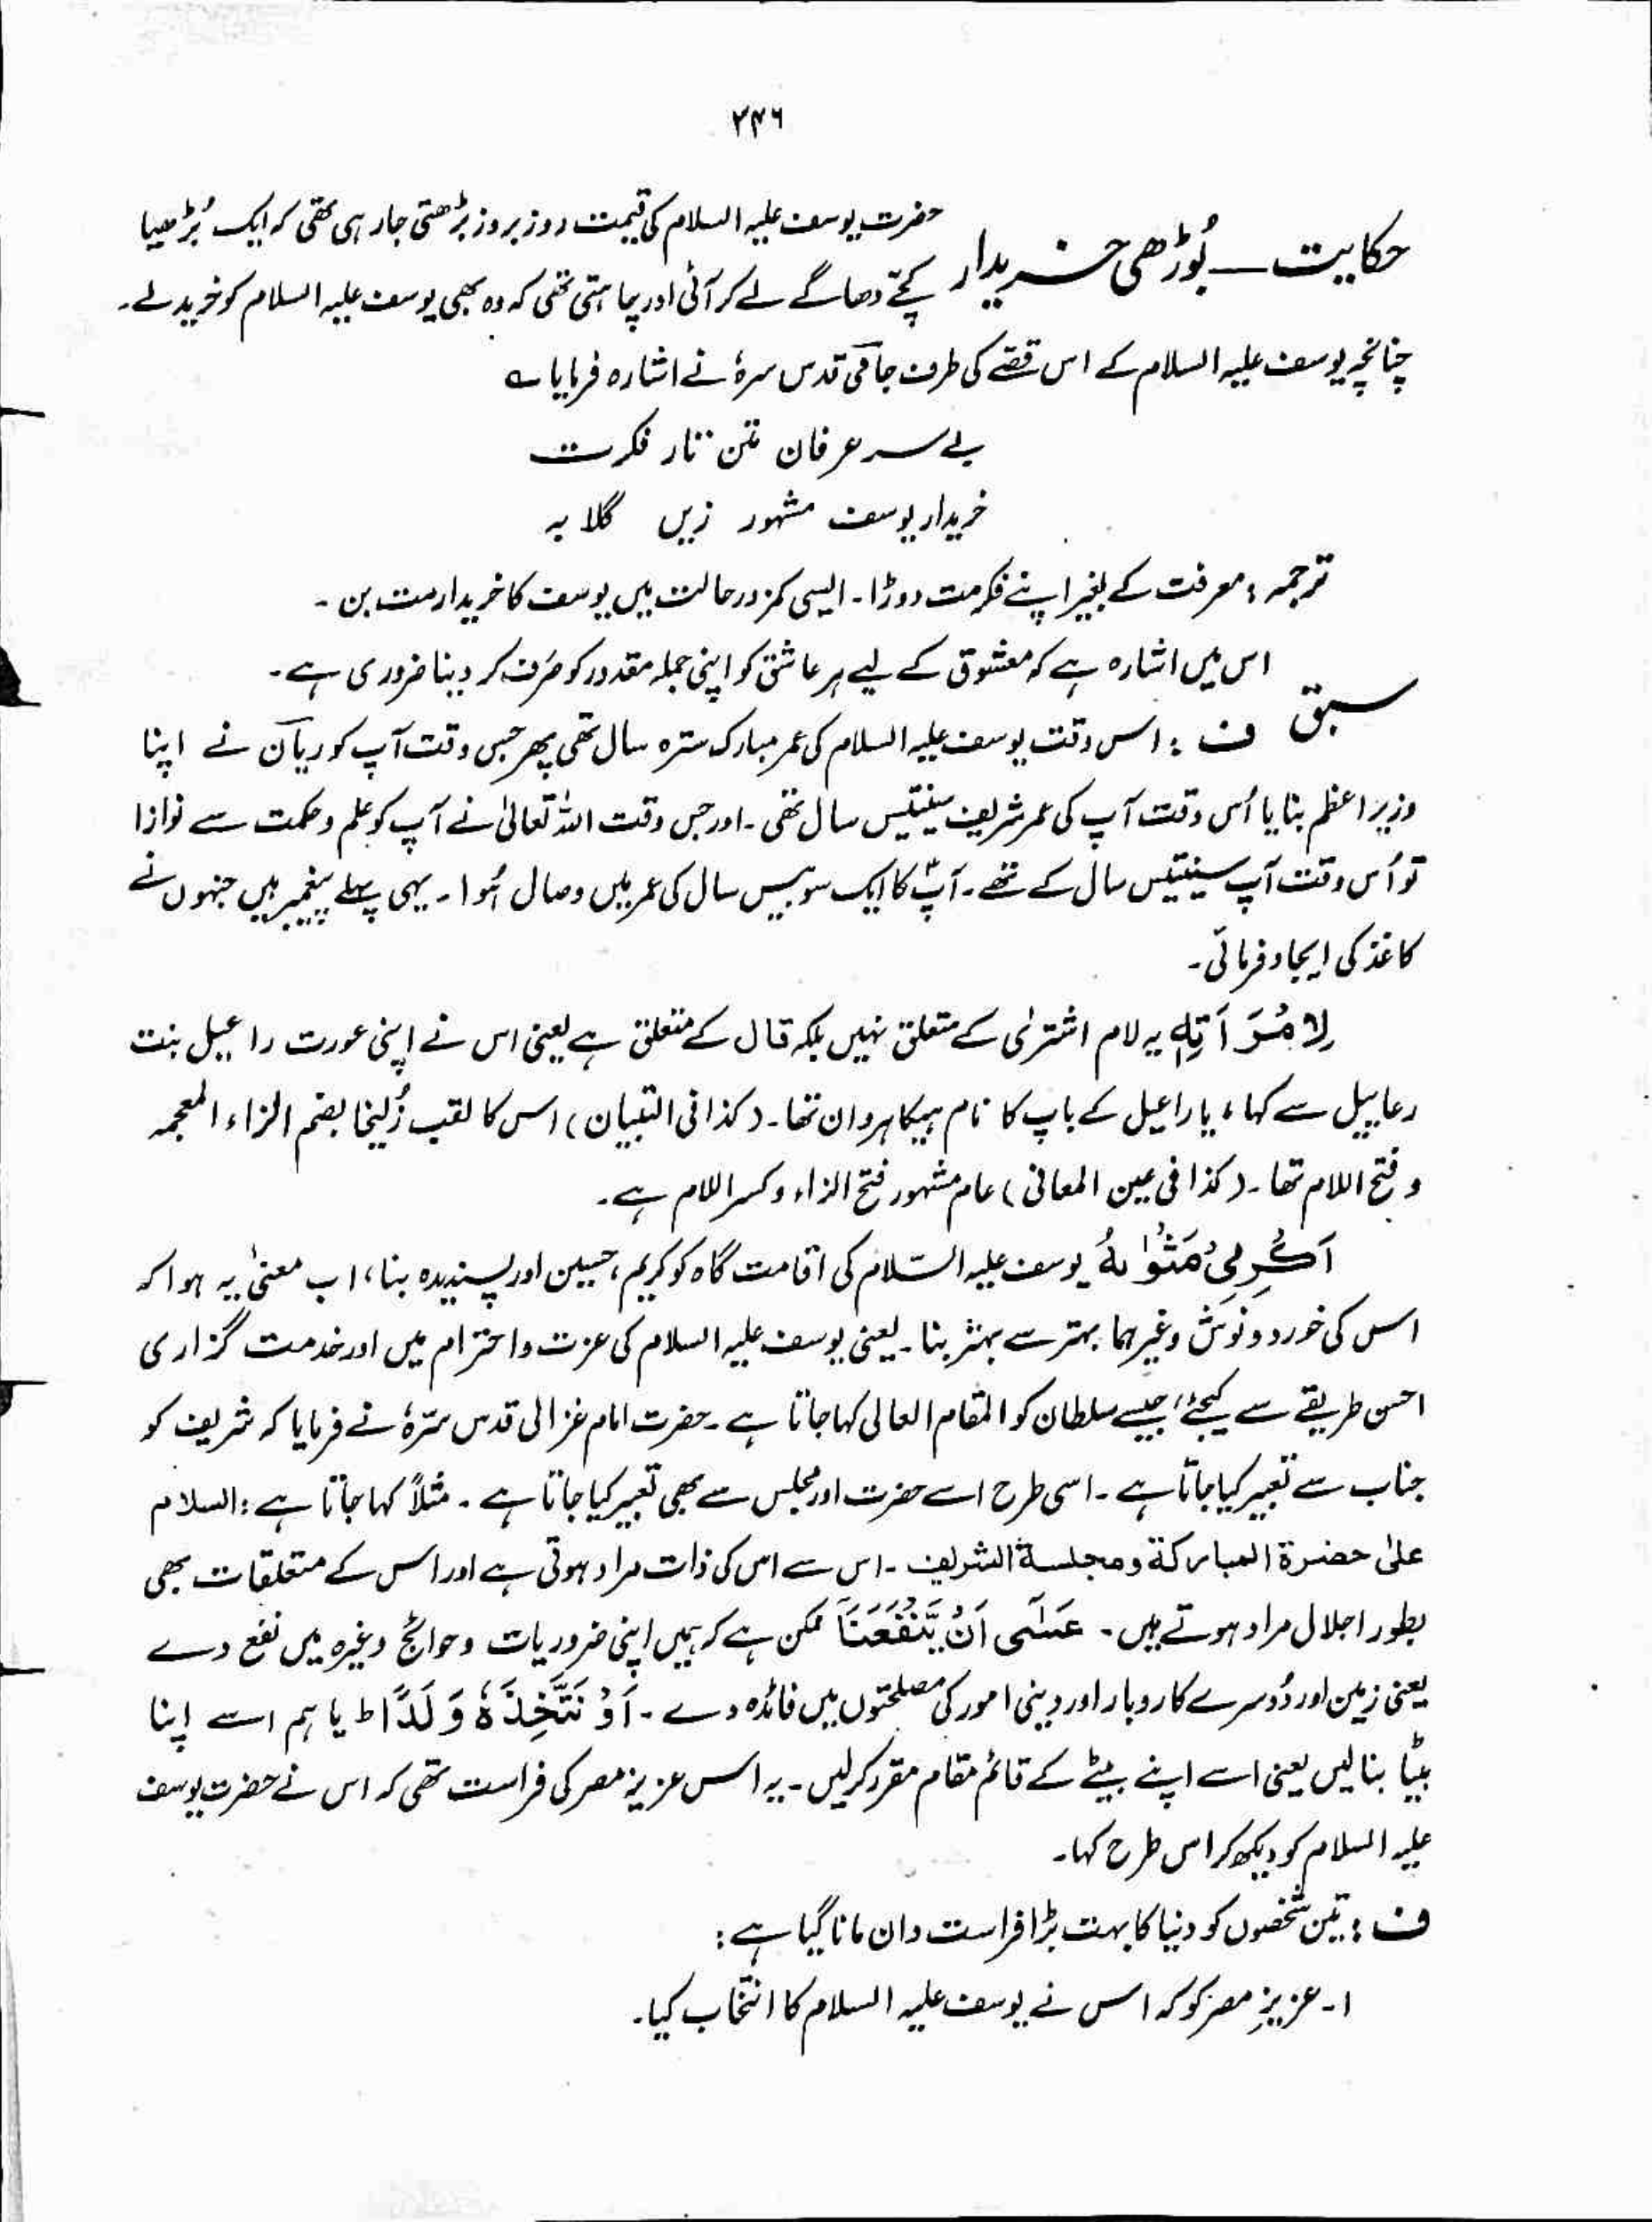 ۲۴۶
حکایت — بُوڑھی خریدار حضرت یوسف علیہ السلام کی قیمت روز بروز بڑھتی جا رہی تھی کہ ایک بُڑھیا
کچّے دھاگے لے کر آئی اور چاہتی تھی کہ وہ بھی یوسف علیہ السلام کو خرید لے۔
چنانچہ یوسف علیہ السلام کے اس قصّے کی طرف جامیؔ قدس سرہٗ نے اشارہ فرمایا ؎
بے سر عرفان متن تار فکرت
خریدار یوسف مشہور زیں گلابہ
ترجمہ : معرفت کے بغیر اپنے فکر مت دوڑا۔ ایسی کمزور حالت میں یوسف کا خریدار مت بن۔
سبق اس میں اشارہ ہے کہ معشوق کے لیے ہر عاشق کو اپنی جملہ مقدور کو صَرف کر دینا ضروری ہے۔
ف : اس وقت یوسف علیہ السلام کی عمر مبارک سترہ سال تھی پھر جس وقت آپ کو ریان نے اپنا
وزیر اعظم بنایا اُس وقت آپ کی عمر شریف سینتیس سال تھی۔ اور جس وقت اللہ تعالیٰ نے آپ کو علم و حکمت سے نوازا
تو اُس وقت آپ سینتیس سال کے تھے۔ آپؑ کا ایک سو بیس سال کی عمر میں وصال ہُوا۔ یہی پہلے پیغمبر ہیں جنہوں نے
کاغذ کی ایجاد فرمائی۔
لِامْرَاَتِہٖ یہ لام اشتریٰ کے متعلق نہیں بلکہ قال کے متعلق ہے یعنی اس نے اپنی عورت راعیل بنت
رعاییل سے کہا، یا راعیل کے باپ کا نام ہیکاہروان تھا۔ (کذا فی التبیان) اس کا لقب زُلیخا بضم الزاء المعجمہ
و فتح اللام تھا۔ (کذا فی عین المعانی) عام مشہور فتح الزاء و کسر اللام ہے۔
اَکْرِمِیْ مَثْوٰىہُ یوسف علیہ السّلام کی اقامت گاہ کو کریم، حسین اور پسندیدہ بنا، اب معنیٰ یہ ہوا کہ
اس کی خورد و نوش وغیرہما بہتر سے بہتر بنا۔ یعنی یوسف علیہ السلام کی عزت و احترام میں اور خدمت گزاری
احسن طریقے سے کیجئے، جیسے سلطان کو المقام العالی کہا جاتا ہے۔ حضرت امام غزالی قدس سرّہٗ نے فرمایا کہ شریف کو
جناب سے تعبیر کیا جاتا ہے۔ اسی طرح اسے حضرت اور مجلس سے بھی تعبیر کیا جاتا ہے۔ مثلاً کہا جاتا ہے : السلام
علیٰ حضرۃ المبارکۃ و مجلسۃ الشریف۔ اس سے اس کی ذات مراد ہوتی ہے اور اس کے متعلقات بھی
بطور اجلال مراد ہوتے ہیں۔ عَسٰٓی اَنْ یَّنْفَعَنَآ ممکن ہے کہ ہمیں اپنی ضروریات و حوائج وغیرہ میں نفع دے
یعنی زمین اور دُوسرے کاروبار اور دینی امور کی مصلحتوں میں فائدہ دے۔ اَوْ نَتَّخِذَہٗ وَلَدًا ط یا ہم اسے اپنا
بیٹا بنا لیں یعنی اسے اپنے بیٹے کے قائم مقام مقرر کر لیں۔ یہ اس عزیز مصر کی فراست تھی کہ اس نے حضرت یوسف
علیہ السلام کو دیکھ کر اس طرح کہا۔
ف : تین شخصوں کو دنیا کا بہت بڑا فراست دان مانا گیا ہے :
۱۔ عزیزِ مصر کو کہ اس نے یوسف علیہ السلام کا انتخاب کیا۔